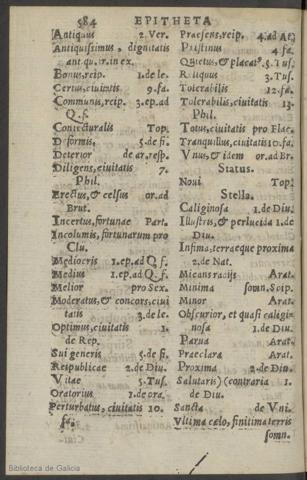 584 EPITHETA
Antiquus 2. Ver.
Antiquissimus, dignitatis
antiqu. ir. in ex.
Bonus, reip. 1. de le.
Certus, ciuitatis 9. fa.
Communis, reip. 3. ep. ad
Q. f.
Coniecturalis Top.
Difformis, 5. de fi.
Deterior de ar. resp.
Diligens, ciuitatis 7.
Phil.
Erectus, & celsus or. ad
Brut.
Incertus, fortunae Part.
Incolumis, fortunarum pro
Clu.
Mediocris 1. ep. ad Q. f.
Medius 1. ep. ad Q. f.
Melior pro Sex.
Moderatus, & concors, ciui
tatis 3. de le.
Optimus, ciuitatis 1.
de Rep.
Sui generis 5. de fi.
Reipublicae 2. de Diu.
Vitae 5. Tus.
Oratorius 1. de ora.
Perturbatus, ciuitatis 10.
fa.
Praesens, reip. 4. ad At.
Pristinus 4. fa.
Quietus, & placat⁹. 5. Tus.
Reliquus 3. Tus.
Tolerabilis 12. fa.
Tolerabilis, ciuitatis 13.
Phil.
Totus, ciuitatis pro Flac.
Tranquillus, ciuitatis 10. fa.
Vnus, & idem or. ad Br.
Status.
Noui Top.
Stella.
Caliginosa 1. de Diu.
Illustris, & perlucida 1. de
Diu.
Infima, terraeque proxima
2. de Nat.
Micans radijs Arat.
Minima somn. Scip.
Minor Arat.
Obscurior, et quasi caligi-
nosa 1. de Diu.
Parua Arat.
Praeclara Arat.
Proxima 2. de Diu.
Salutaris) (contraria 1.
de Diu.
Sancta de Vni.
Vltima caelo, finitima terris
somn.
Biblioteca de Galicia